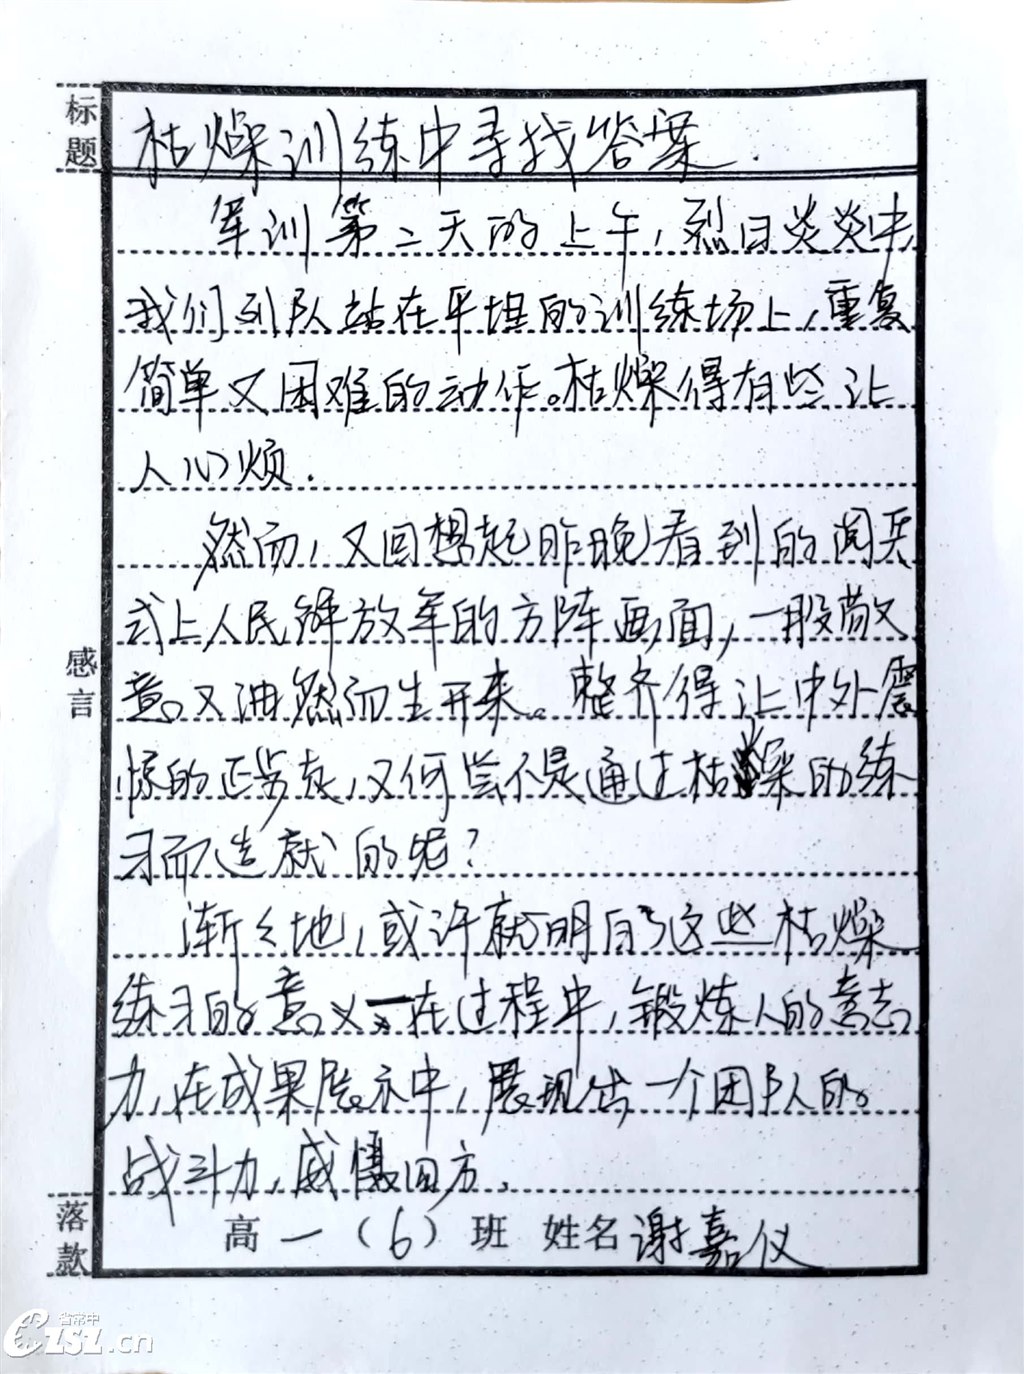 标题
枯燥训练中寻找答案.
军训第二天的上午,烈日炎炎中,
我们列队站在平坦的训练场上,重复
简单又困难的动作。枯燥得有些让
人心烦.
然而,又回想起昨晚看到的阅兵
式上人民解放军的方阵画面,一股敬
意又油然而生开来。整齐得让中外震
惊的正步走,又何尝不是通过枯燥的练
习而造就的呢?
渐々地,或许就明白了这些枯燥
练习的意义——在过程中,锻炼人的意志
力,在成果展示中,展现出一个团队的
战斗力,威慑四方.
感言
落款
高一(6)班 姓名谢嘉仪
省常中
CZSZ.cn